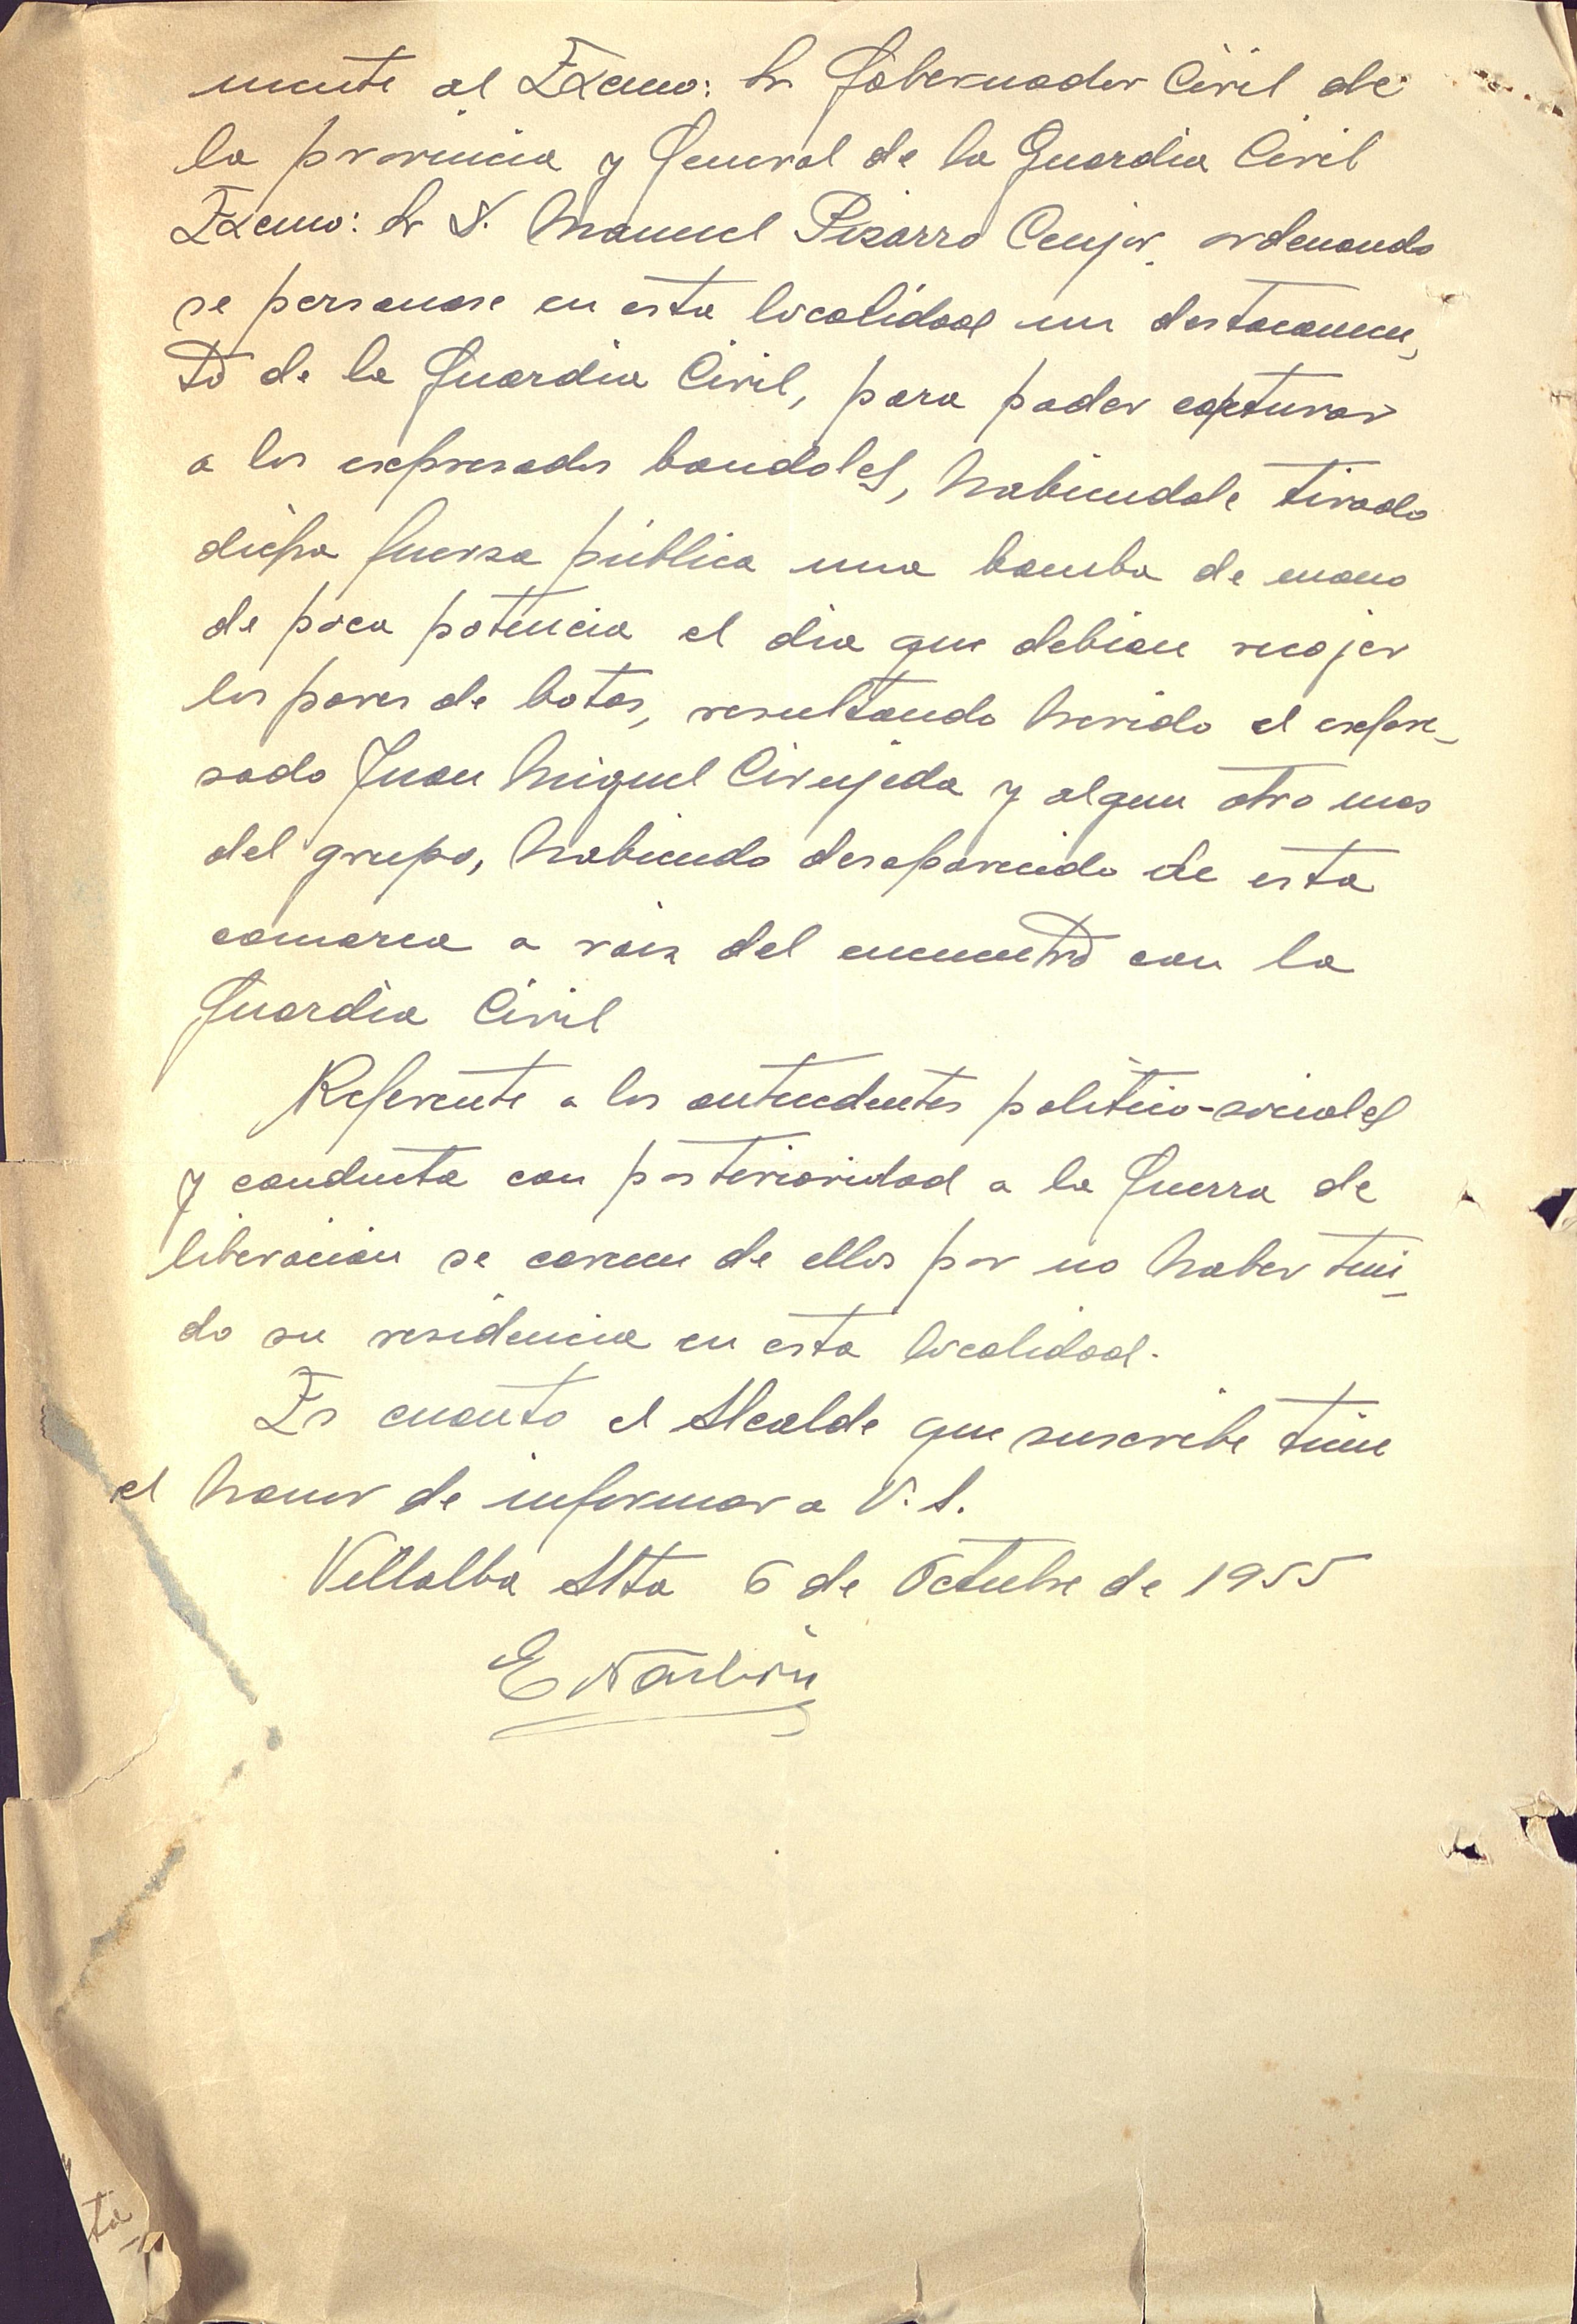 mente al Excmo: Sr Gobernador Civil de
la provincia y General de la Guardia Civil
Excmo: Sr D. Manuel Pizarro Cenjor, ordenando
se personase en esta localidad un destacamen-
to de la Guardia Civil, para poder capturar
a los expresados bandoles, habiendole tirado
dicha fuerza pública una bomba de mano
de poca potencia el dia que debian recojer
los pares de botas, resultando herido el expre-
sado Juan Miguel Cirujeda y algun otro mas
del grupo, habiendo desaparecido de esta
comarca a raiz del encuentro con la
Guardia Civil
Referente a los antecedentes politico-sociales
y conducta con posterioridad a la Guerra de
liberacion se carecen de ellos por no haber teni-
do su residencia en esta localidad.
Es cuanto el Alcalde que suscribe tiene
el honor de informar a V. S.
Villalba Alta 6 de Octubre de 1955
ta